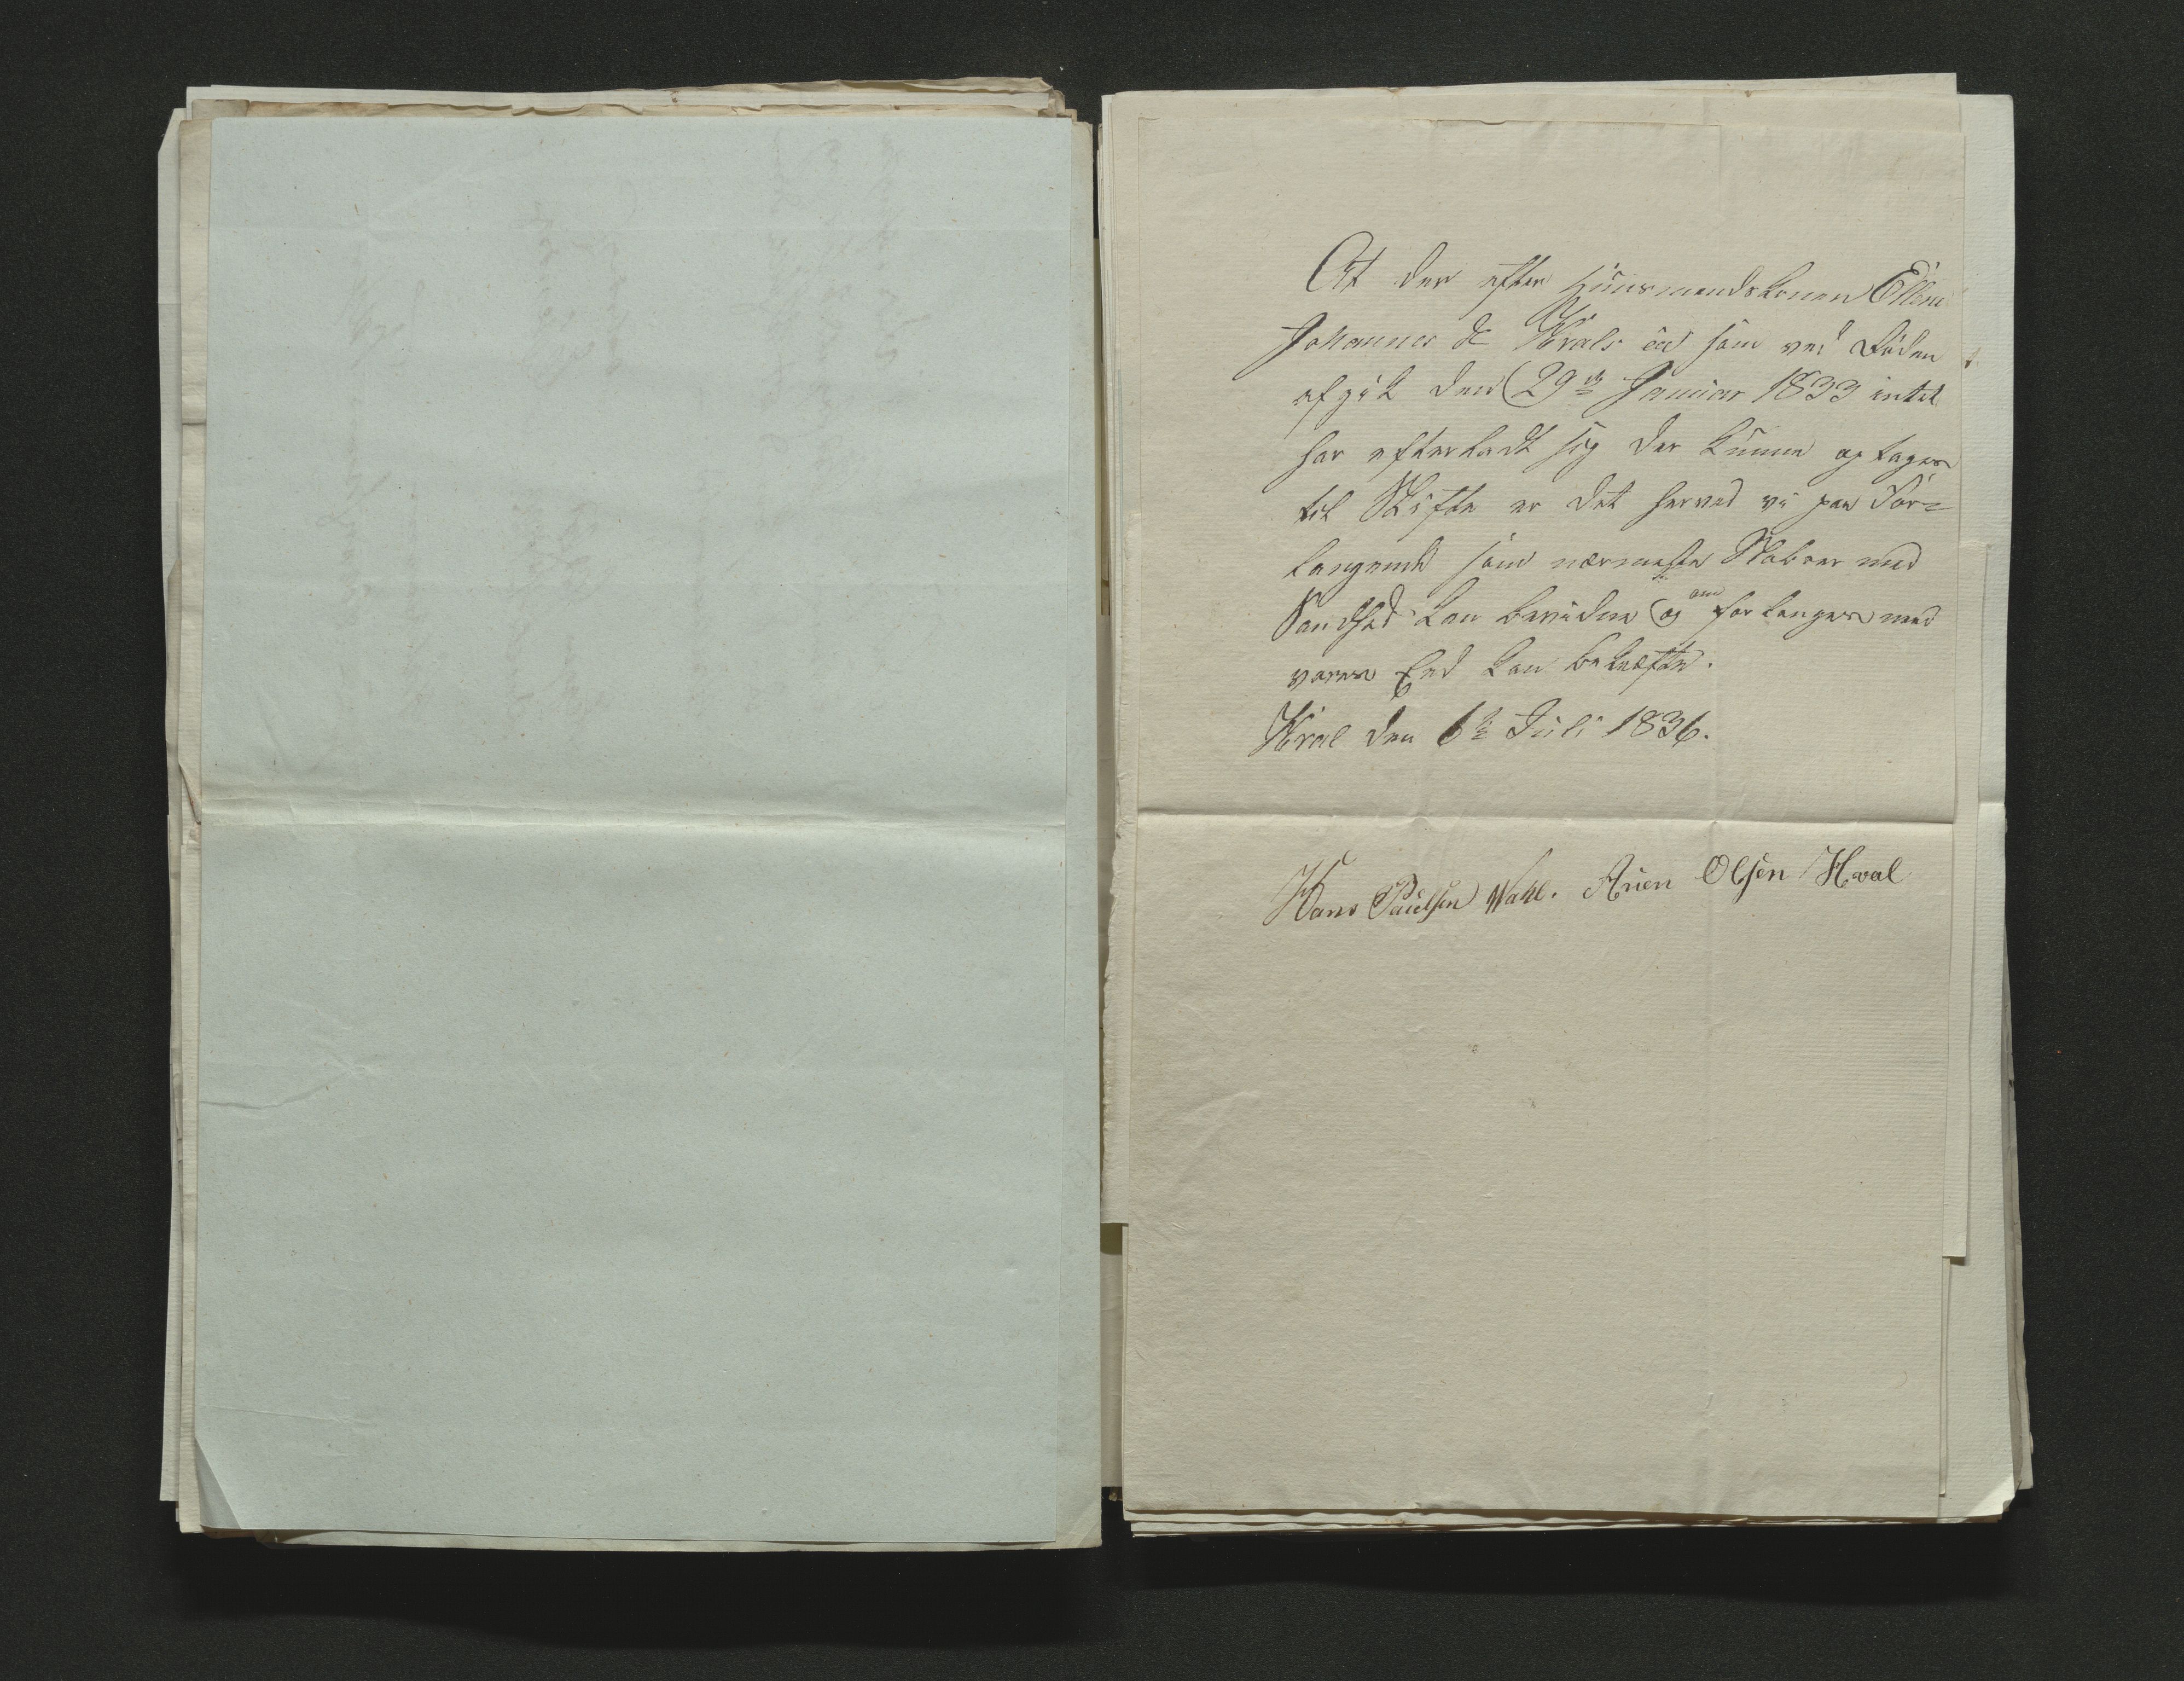 At der efter Huusmandskonen Ellen
Johannes D Hvals eie som ved Døden
afgik den 29de Januar 1833 intet
har efterladt sig der kunne optages
til Skifte er det herved vi paa For-
langende som nærmeste Naboer med
Sandhed kan bevidne og om forlanges med
vores Eed kan bekræfte.
Hval den 6te Juli 1836.
Hans Paulsen Wahl. Arien Olsen Hwal